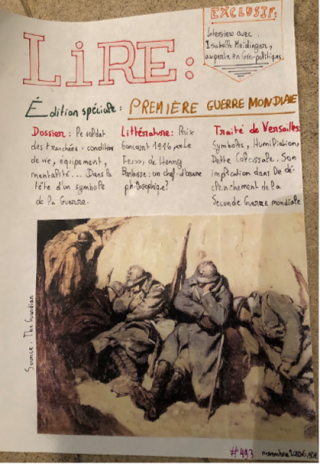 EXCLUSIF:
Interview avec
Isabelle
experte en Géo-politique.
LiRE:
Édition spéciale: PREMIÈRE GUERRE MONDIALE
Dossier: Le soldat
des tranchées: condition
de vie, équipement,
mentalité... Dans la
tête d'un symbole
de la Guerre.
Littérature: Prix
Goncourt 1916, 
de Henry
Barbusse: un chef-d'œuvre
philosophique?
Traité de Versailles:
Symbols, Humiliation,
Dette Colossale. Son
implication dans
clenchement de la
Seconde Guerre mondiale
Source: The Guardian
#493
novembre